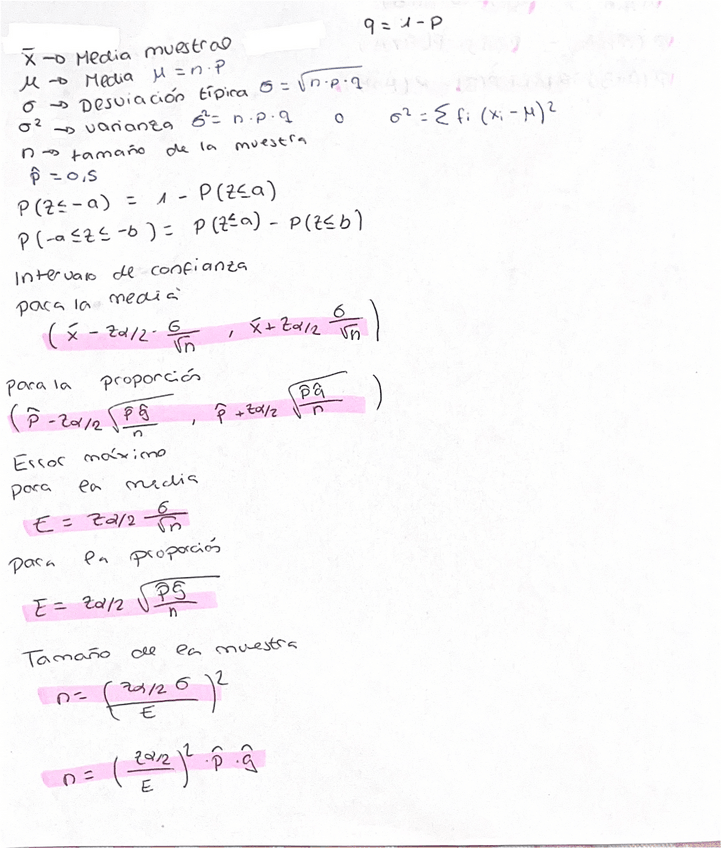 q = 1 - p
x̄ → Media muestral
μ → Media μ = n·p
σ → Desviación típica σ = √(n·p·q)
σ² → varianza σ² = n·p·q o σ² = Σ fi (xi - μ)²
n → tamaño de la muestra
p̂ = 0,5
P(z≤-a) = 1 - P(z≤a)
P(-a≤z≤-b) = P(z≤a) - P(z≤b)
Intervalo de confianza
para la media
(x̄ - zα/2 · σ/√n , x̄ + zα/2 σ/√n)
para la proporción
(p̂ - zα/2 √(p̂q̂/n) , p̂ + zα/2 √(p̂q̂/n))
Error máximo
para la media
E = zα/2 σ/√n
para la proporción
E = zα/2 √(p̂q̂/n)
Tamaño de la muestra
n = (zα/2 σ/E)²
n = (zα/2/E)² · p̂ · q̂